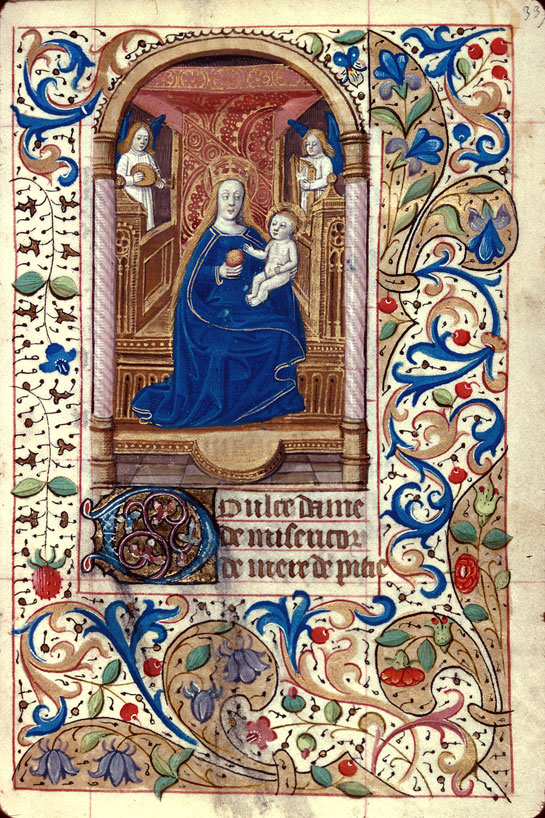 DOulce dame
de misericor
de mere de pitie